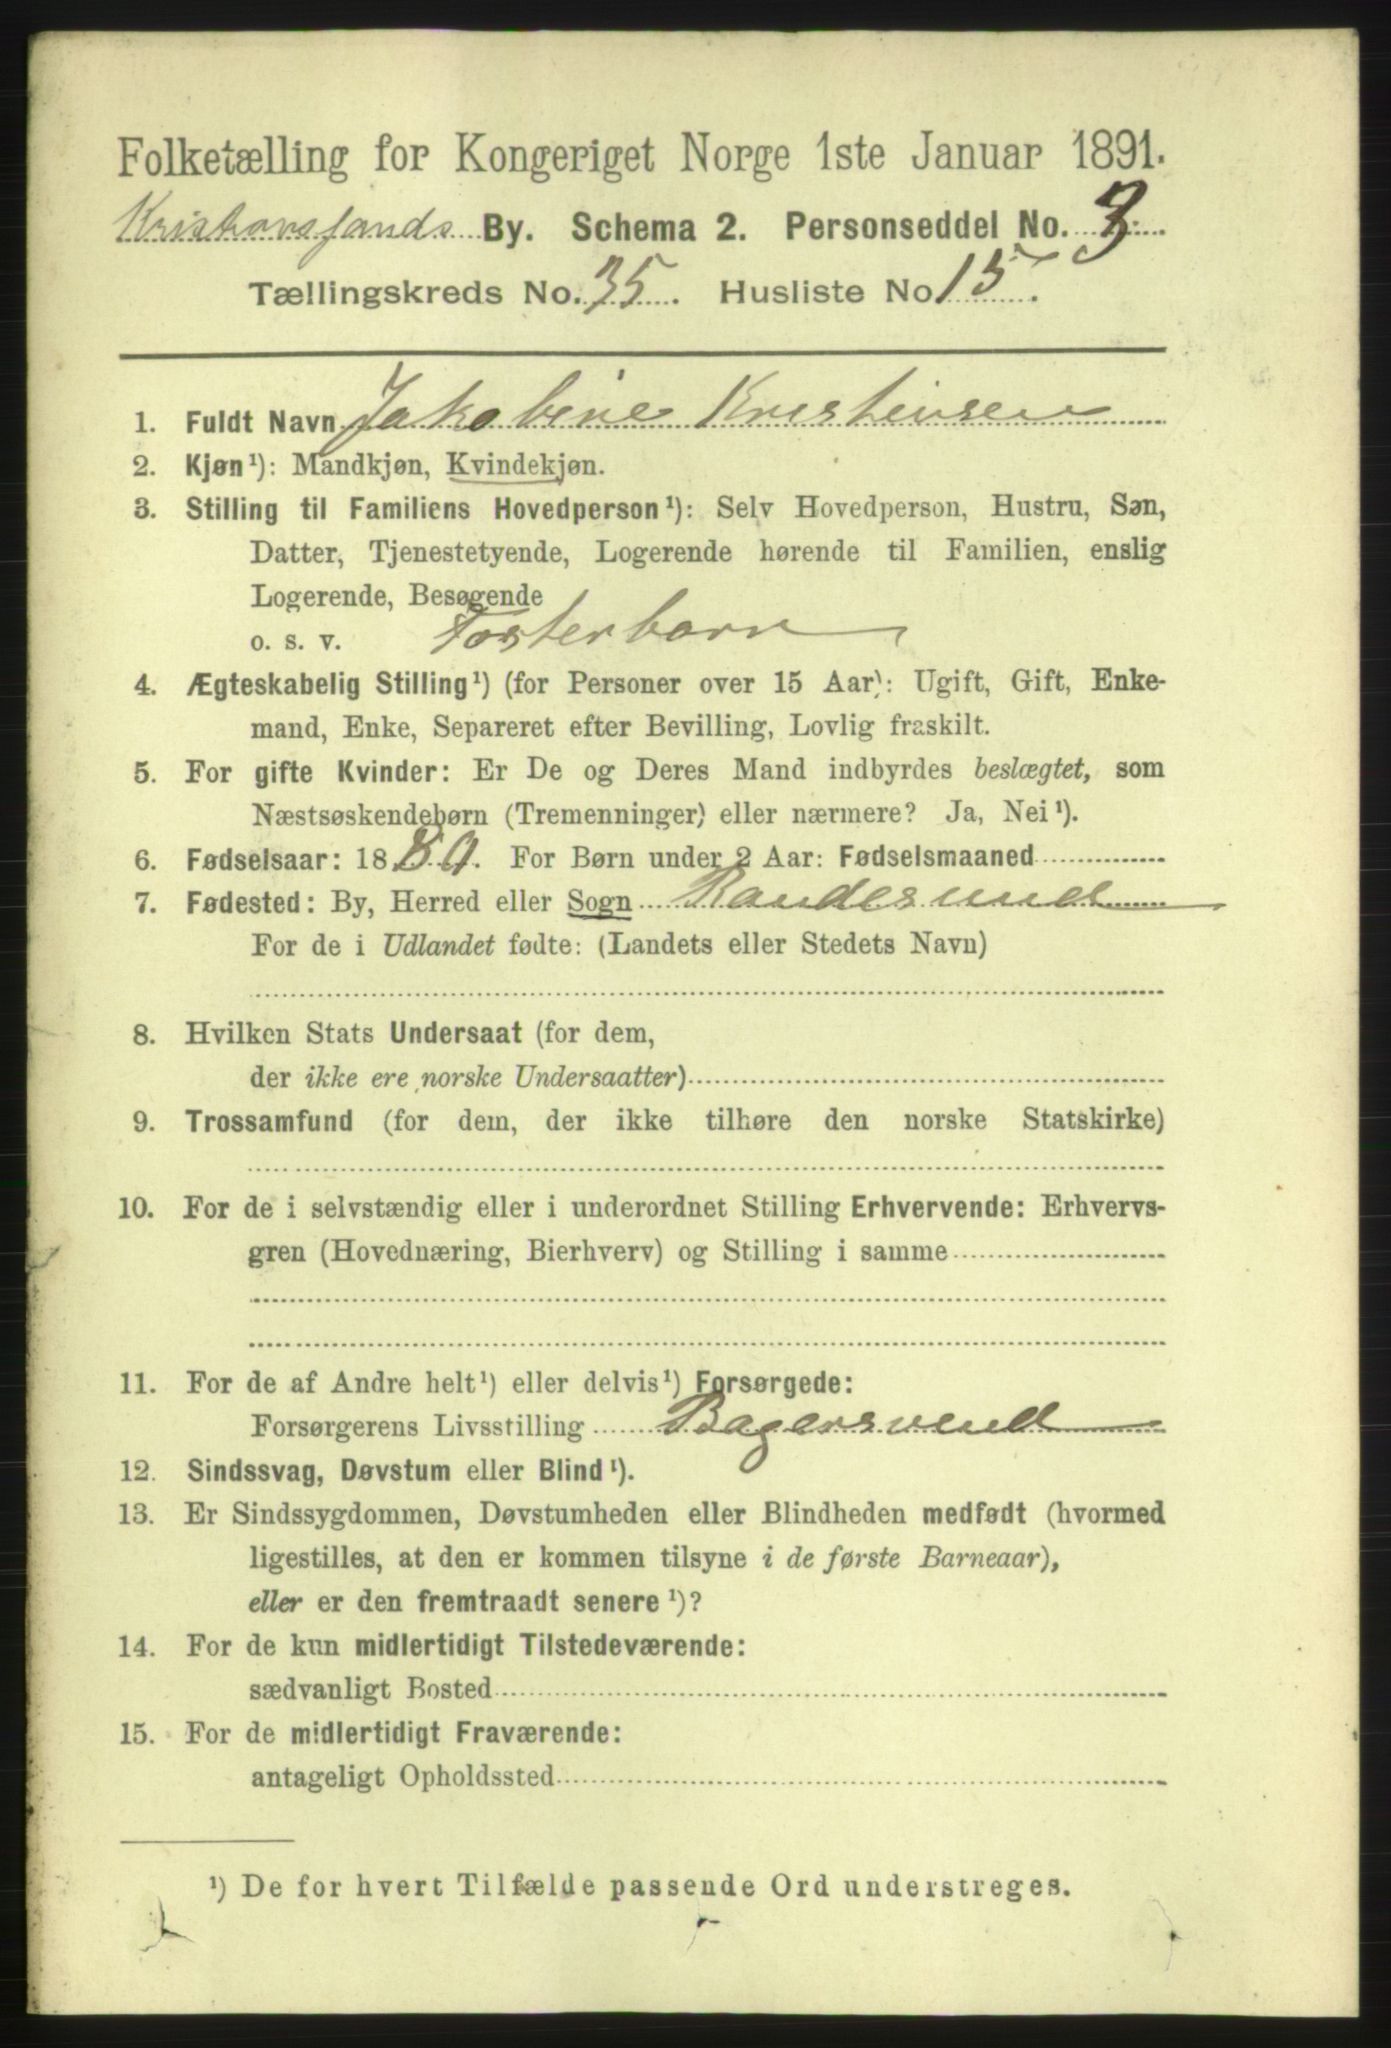 Folketælling for Kongeriget Norge 1ste Januar 1891.
Kristiansands By. Schema 2. Personseddel No. 3.
Tællingskreds No. 35. Husliste No 15.
1. Fuldt Navn Jakobine Kristensen
2. Kjøn¹): Mandkjøn, Kvindekjøn.
3. Stilling til Familiens Hovedperson¹): Selv Hovedperson, Hustru, Søn,
Datter, Tjenestetyende, Logerende hørende til Familien, enslig
Logerende, Besøgende
o. s. v. Fosterbarn
4. Ægteskabelig Stilling¹) (for Personer over 15 Aar): Ugift, Gift, Enke-
mand, Enke, Separeret efter Bevilling, Lovlig fraskilt.
5. For gifte Kvinder: Er De og Deres Mand indbyrdes beslægtet, som
Næstsøskendebørn (Tremenninger) eller nærmere? Ja, Nei¹).
6. Fødselsaar: 1880. For Børn under 2 Aar: Fødselsmaaned
7. Fødested: By, Herred eller Sogn Randesund
For de i Udlandet fødte: (Landets eller Stedets Navn)
8. Hvilken Stats Undersaat (for dem,
der ikke ere norske Undersaatter)
9. Trossamfund (for dem, der ikke tilhøre den norske Statskirke)
10. For de i selvstændig eller i underordnet Stilling Erhvervende: Erhvervs-
gren (Hovednæring, Bierhverv) og Stilling i samme
11. For de af Andre helt¹) eller delvis¹) Forsørgede:
Forsørgerens Livsstilling Bagersvend
12. Sindssvag, Døvstum eller Blind¹).
13. Er Sindssygdommen, Døvstumheden eller Blindheden medfødt (hvormed
ligestilles, at den er kommen tilsyne i de første Barneaar),
eller er den fremtraadt senere¹)?
14. For de kun midlertidigt Tilstedeværende:
sædvanligt Bosted
15. For de midlertidigt Fraværende:
antageligt Opholdssted
¹) De for hvert Tilfælde passende Ord understreges.